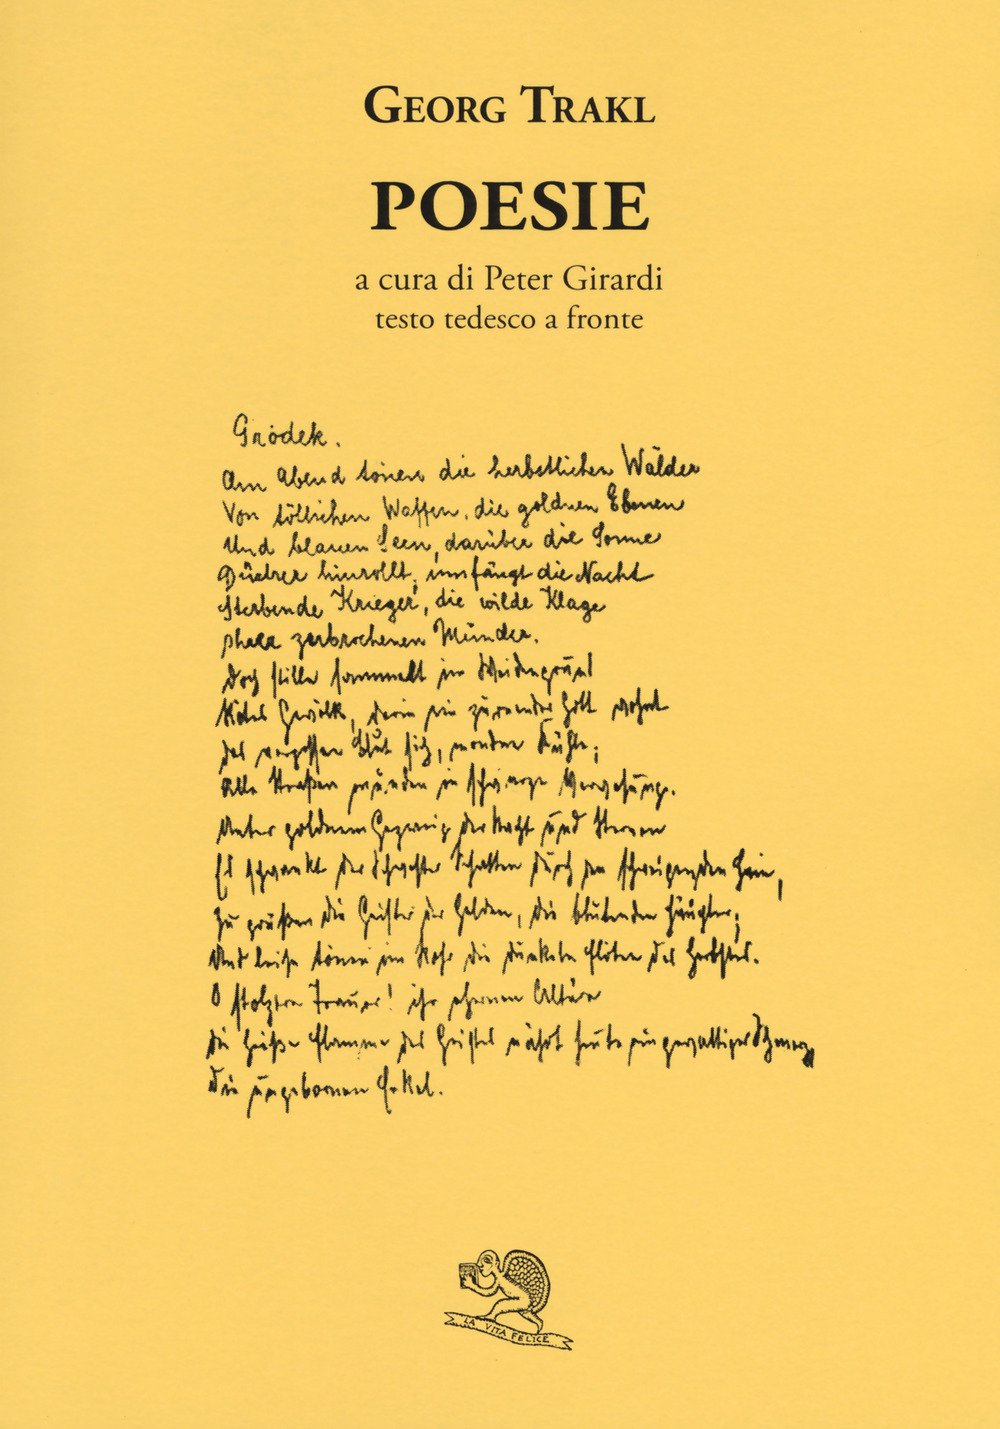 GEORG TRAKL
POESIE
a cura di Peter Girardi
testo tedesco a fronte
Grodek.
Am Abend tönen die herbstlichen Wälder
Von tötlichen Waffen, die goldnen Ebenen
Und blauen Seen, darüber die Sonne
Düstrer hinrollt; umfängt die Nacht
Sterbende Krieger, die wilde Klage
Ihrer zerbrochenen Münder.
Doch stille sammelt im Weidengrund
Rotes Gewölk, darin ein zürnender Gott wohnt
Das vergossne Blut sich, mondne Kühle;
Alle Straßen münden in schwarze Verwesung.
Unter goldnem Gezweig der Nacht und Sternen
Es schwankt der Schwester Schatten durch den schweigenden Hain,
Zu grüßen die Geister der Helden, die blutenden Häupter;
Und leise tönen im Rohr die dunkeln Flöten des Herbstes.
O stolzere Trauer! ihr ehernen Altäre
Die heiße Flamme des Geistes nährt heute ein gewaltiger Schmerz,
Die ungebornen Enkel.
LA VITA FELICE